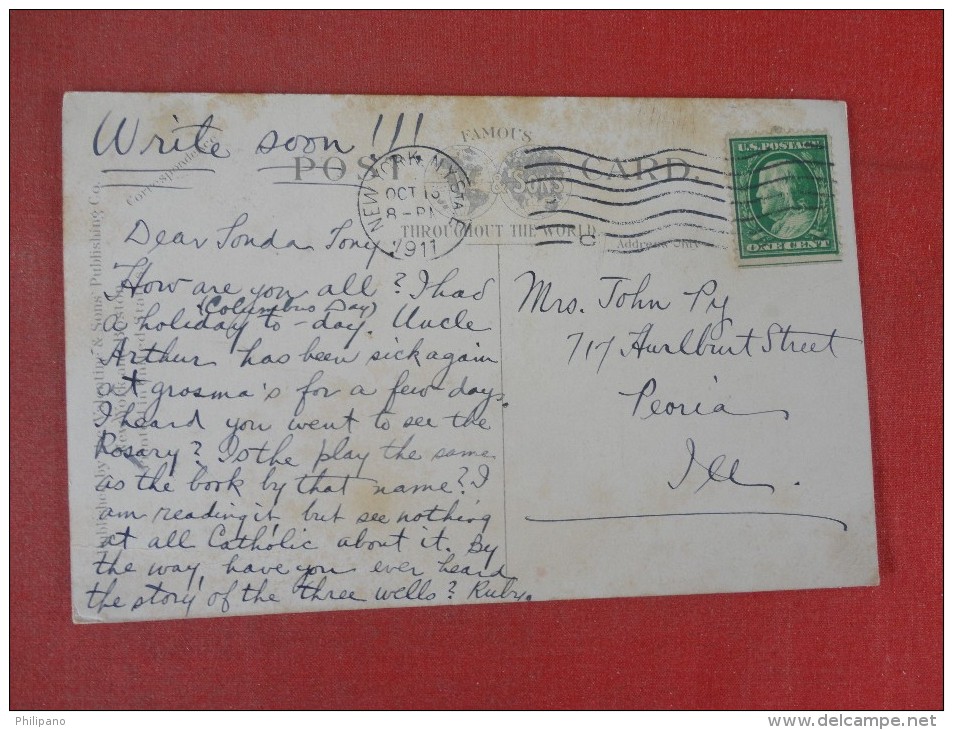 Write soon!!!
FAMOUS
POST CARD.
& SONS
THROUGHOUT THE WORLD
Correspondence
Address Only
NEW YORK, N.Y. STA.
OCT 13
8-PM
1911
C
U.S. POSTAGE
ONE CENT
Dear Tonda Tony
How are you all? I had
(Columbus Day)
a holiday to-day. Uncle
Arthur has been sick again
at grosma's for a few days.
I heard you went to see the
Rosary? Is the play the same
as the book by that name? I
am reading it, but see nothing
at all Catholic about it. By
the way, have you ever heard
the story of the three wells? Ruby.
Mrs. John Py
717 Hurlburt Street
Peoria
Ill.
Valentine & Sons Publishing Co.
Philipano
http://www.delcampe.net